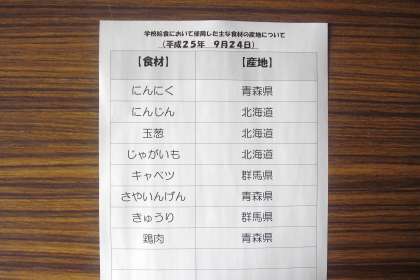 学校給食において使用した主な食材の産地について
（平成２５年　９月２４日）
【食材】　【産地】
にんにく　青森県
にんじん　北海道
玉葱　北海道
じゃがいも　北海道
キャベツ　群馬県
さやいんげん　青森県
きゅうり　群馬県
鶏肉　青森県